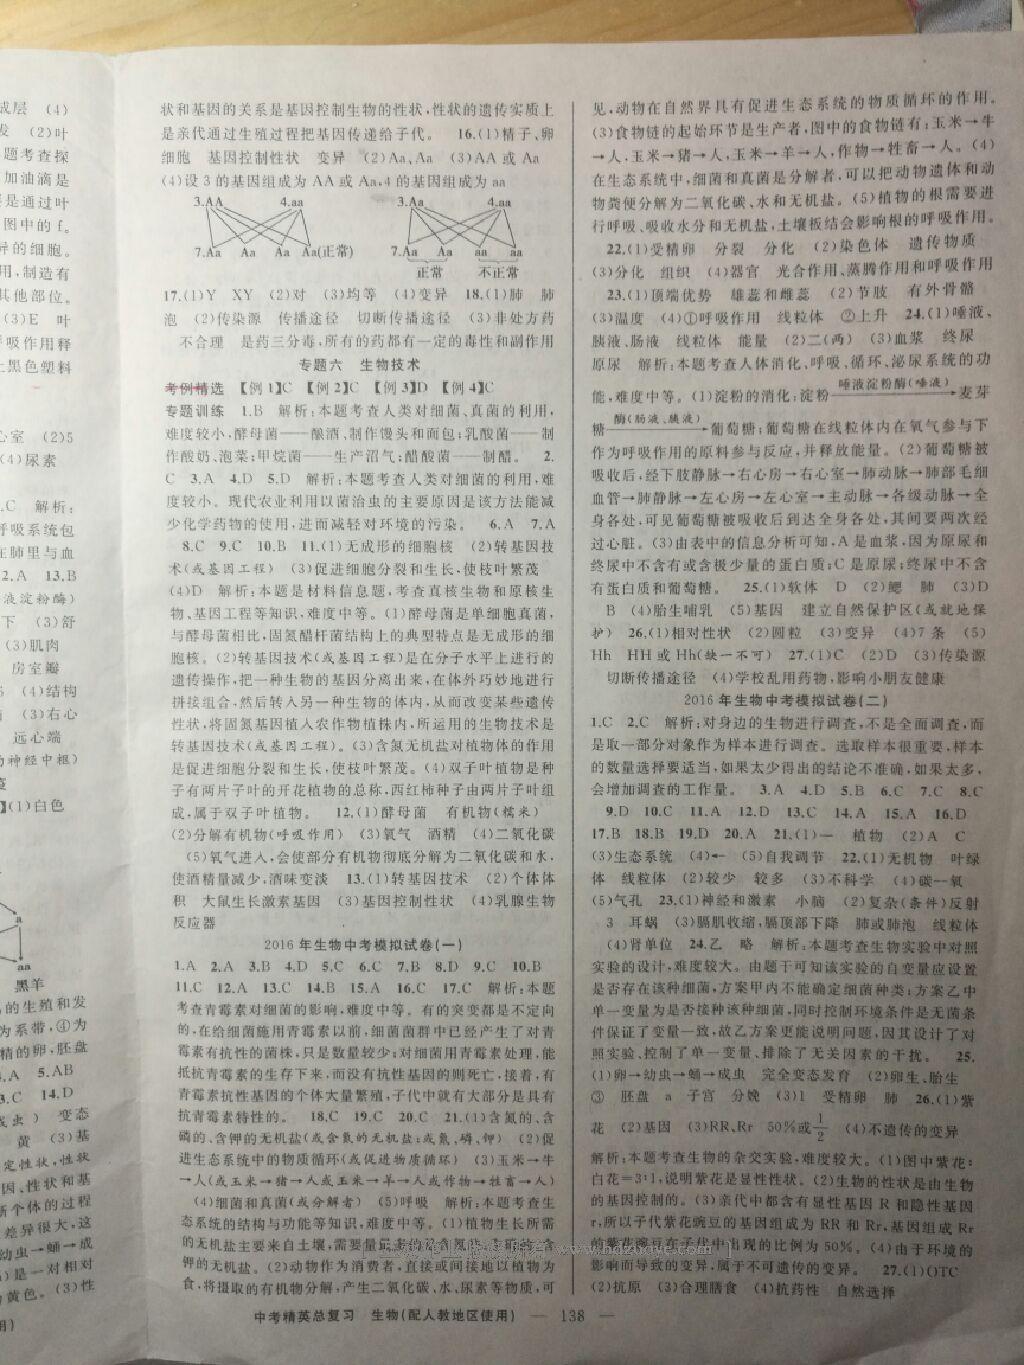 成层 (4)
发 (2)叶
题考查探
加油滴是
是通过叶
图中的 f。
异的细胞。
用,制造有
其他部位。
(3)E 叶
呼吸作用释
上黑色塑料
心室 (2)5
(4)尿素
.C 解析:
呼吸系统包
在肺里与血
2.A 13.B
液淀粉酶)
下 (3)舒
(3)肌肉
房室瓣
(4)结构
(3)右心
远心端
(1)白色
a
aa
黑羊
的生殖和发
为系带,④为
精的卵,胚盘
.A 5.AB
3.C 14.D
成虫) 变态
黄 (3)基
定性状,性状
因、性状和基
新个体的过程
差异很大,这
幼虫→蛹→成
)是一对相对
黄色。(3)性
状和基因的关系是基因控制生物的性状,性状的遗传实质上
是亲代通过生殖过程把基因传递给子代。 16.(1)精子、卵
细胞 基因控制性状 变异 (2)Aa、Aa (3)AA 或 Aa
(4)设 3 的基因组成为 AA 或 Aa,4 的基因组成为 aa
3.AA 4.aa 3.Aa 4.aa
7.Aa Aa Aa Aa(正常) 7.Aa Aa aa aa
正常 不正常
17.(1)Y XY (2)对 (3)均等 (4)变异 18.(1)肺 肺
泡 (2)传染源 传播途径 切断传播途径 (3)非处方药
不合理 是药三分毒,所有的药都有一定的毒性和副作用
专题六 生物技术
考例精选 【例 1】C 【例 2】C 【例 3】D 【例 4】C
专题训练 1.B 解析:本题考查人类对细菌、真菌的利用,
难度较小,酵母菌——酿酒、制作馒头和面包;乳酸菌——制
作酸奶、泡菜;甲烷菌——生产沼气;醋酸菌——制醋。 2.
C 3.A 4.D 5.D 解析:本题考查人类对细菌的利用,难
度较小。现代农业利用以菌治虫的主要原因是该方法能减
少化学药物的使用,进而减轻对环境的污染。 6.A 7.A
8.C 9.C 10.B 11.(1)无成形的细胞核 (2)转基因技
术(或基因工程) (3)促进细胞分裂和生长,使枝叶繁茂
(4)D 解析:本题是材料信息题,考查真核生物和原核生
物、基因工程等知识,难度中等。(1)酵母菌是单细胞真菌,
与酵母菌相比,固氮醋杆菌结构上的典型特点是无成形的细
胞核。(2)转基因技术(或基因工程)是在分子水平上进行的
遗传操作,把一种生物的基因分离出来,在体外巧妙地进行
拼接组合,然后转入另一种生物的体内,从而改变某些遗传
性状,将固氮基因植入农作物植株内,所运用的生物技术是
转基因技术(或基因工程)。(3)含氮无机盐对植物体的作用
是促进细胞分裂和生长,使枝叶繁茂。(4)双子叶植物是种
子有两片子叶的开花植物的总称,西红柿种子由两片子叶组
成,属于双子叶植物。 12.(1)酵母菌 有机物(糯米)
(2)分解有机物(呼吸作用) (3)氧气 酒精 (4)二氧化碳
(5)氧气进入,会使部分有机物彻底分解为二氧化碳和水,
使酒精量减少,酒味变淡 13.(1)转基因技术 (2)个体体
积 大鼠生长激素基因 (3)基因控制性状 (4)乳腺生物
反应器
2016 年生物中考模拟试卷(一)
1.A 2.A 3.B 4.D 5.C 6.C 7.B 8.D 9.C 10.B
11.C 12.A 13.C 14.B 15.A 16.C 17.C 解析:本题
考查青霉素对细菌的影响,难度中等。有的突变都是不定向
的,在给细菌施用青霉素以前,细菌菌群中已经产生了对青
霉素有抗性的菌株,只是数量较少;对细菌用青霉素处理,能
抵抗青霉素的生存下来,而没有抗性基因的则死亡,接着,有
青霉素抗性基因的个体大量繁殖,子代中就有大部分是具有
抗青霉素特性的。 18.C 19.C 20.C 21.(1)含氮的、含
磷的、含钾的无机盐(或含氮的无机盐;或氮,磷,钾) (2)促
进生态系统中的物质循环(或促进物质循环) (3)玉米→牛
→人(或玉米→猪→人或玉米→羊→人或作物→牲畜→人)
(4)细菌和真菌(或分解者) (5)呼吸 解析:本题考查生
态系统的结构与功能等知识,难度中等。(1)植物生长所需
的无机盐主要来自土壤,需要量最多的是含氮的、含磷的、含
钾的无机盐。(2)动物作为消费者,直接或间接地以植物为
食,将摄取的有机物分解,产生二氧化碳、水、尿素等物质,可
见,动物在自然界具有促进生态系统的物质循环的作用。
(3)食物链的起始环节是生产者,图中的食物链有:玉米→牛
→人,玉米→猪→人,玉米→羊→人,作物→牲畜→人。(4)
在生态系统中,细菌和真菌是分解者,可以把动物遗体和动
物粪便分解为二氧化碳、水和无机盐。(5)植物的根需要进
行呼吸、吸收水分和无机盐,土壤板结会影响根的呼吸作用。
22.(1)受精卵 分裂 分化 (2)染色体 遗传物质
(3)分化 组织 (4)器官 光合作用、蒸腾作用和呼吸作用
23.(1)顶端优势 雄蕊和雌蕊 (2)节肢 有外骨骼
(3)温度 (4)①呼吸作用 线粒体 ②上升 24.(1)唾液、
胰液、肠液 线粒体 能量 (2)二(两) (3)血浆 终尿
原尿 解析:本题考查人体消化、呼吸、循环、泌尿系统的功
能,难度中等。(1)淀粉的消化:淀粉 唾液淀粉酶(唾液) 麦芽
糖 酶(肠液、胰液) 葡萄糖;葡萄糖在线粒体内在氧气参与下
作为呼吸作用的原料参与反应,并释放能量。(2)葡萄糖被
吸收后,经下肢静脉→右心房→右心室→肺动脉→肺部毛细
血管→肺静脉→左心房→左心室→主动脉→各级动脉→全
身各处,可见葡萄糖被吸收后到达全身各处,其间要两次经
过心脏。(3)由表中的信息分析可知,A 是血浆,因为原尿和
终尿中不含有或含极少量的蛋白质;C 是原尿;终尿中不含
有蛋白质和葡萄糖。 25.(1)软体 D (2)鳃 肺 (3)D
B (4)胎生哺乳 (5)基因 建立自然保护区(或就地保
护) 26.(1)相对性状 (2)圆粒 (3)变异 (4)7 条 (5)
Hh HH 或 Hh(缺一不可) 27.(1)C (2)D (3)传染源
切断传播途径 (4)学校乱用药物,影响小朋友健康
2016 年生物中考模拟试卷(二)
1.C 2.C 解析:对身边的生物进行调查,不是全面调查,而
是取一部分对象作为样本进行调查。选取样本很重要,样本
的数量选择要适当,如果太少得出的结论不准确,如果太多,
会增加调查的工作量。 3.A 4.D 5.B 6.C 7.C 8.C
9.D 10.C 11.A 12.D 13.C 14.A 15.A 16.D
17.B 18.B 19.D 20.A 21.(1)一 植物 (2)A C
(3)生态系统 (4)← (5)自我调节 22.(1)无机物 叶绿
体 线粒体 (2)较少 较多 (3)不科学 (4)碳—氧
(5)气孔 23.(1)神经和激素 小脑 (2)复杂(条件)反射
3 耳蜗 (3)膈肌收缩,膈顶部下降 肺或肺泡 线粒体
(4)肾单位 24.乙 略 解析:本题考查生物实验中对照
实验的设计,难度较大。由题干可知该实验的自变量应设置
是否存在该种细菌,方案甲内不能确定细菌种类;方案乙中
单一变量为是否接种该种细菌,同时控制环境条件是无菌条
件保证了变量一致,故乙方案更能说明问题,因其设计了对
照实验、控制了单一变量、排除了无关因素的干扰。 25.
(1)卵→幼虫→蛹→成虫 完全变态发育 (2)卵生、胎生
③ 胚盘 a 子宫 分娩 (3)1 受精卵 肺 26.(1)紫
花 (2)基因 (3)RR、Rr 50%或1/2 (4)不遗传的变异
解析:本题考查生物的杂交实验,难度较大。(1)图中紫花:
白花=3:1,说明紫花是显性性状。(2)生物的性状是由生物
的基因控制的。(3)亲代中都含有显性基因 R 和隐性基因
r,所以子代紫花豌豆的基因组成为 RR 和 Rr,基因组成 Rr
的紫花豌豆在子代中出现的比例为 50%。(4)由于环境的
影响而导致的变异,属于不可遗传的变异。 27.(1)OTC
(2)抗原 (3)合理膳食 (4)抗药性 自然选择
中考精英总复习 生物(配人教地区使用) — 138 —